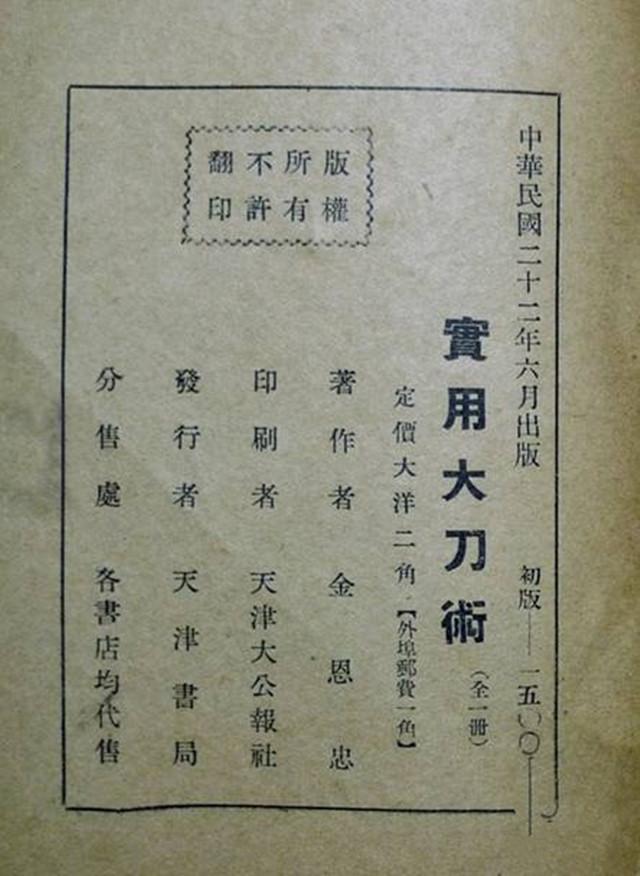 中華民國二十二年六月出版 初版——一五〇〇——
實用大刀術(全一冊)
定價大洋二角【外埠郵費一角】
版權
所有
不許
翻印
著作者 金恩忠
印刷者 天津大公報社
發行者 天津書局
分售處 各書店均代售